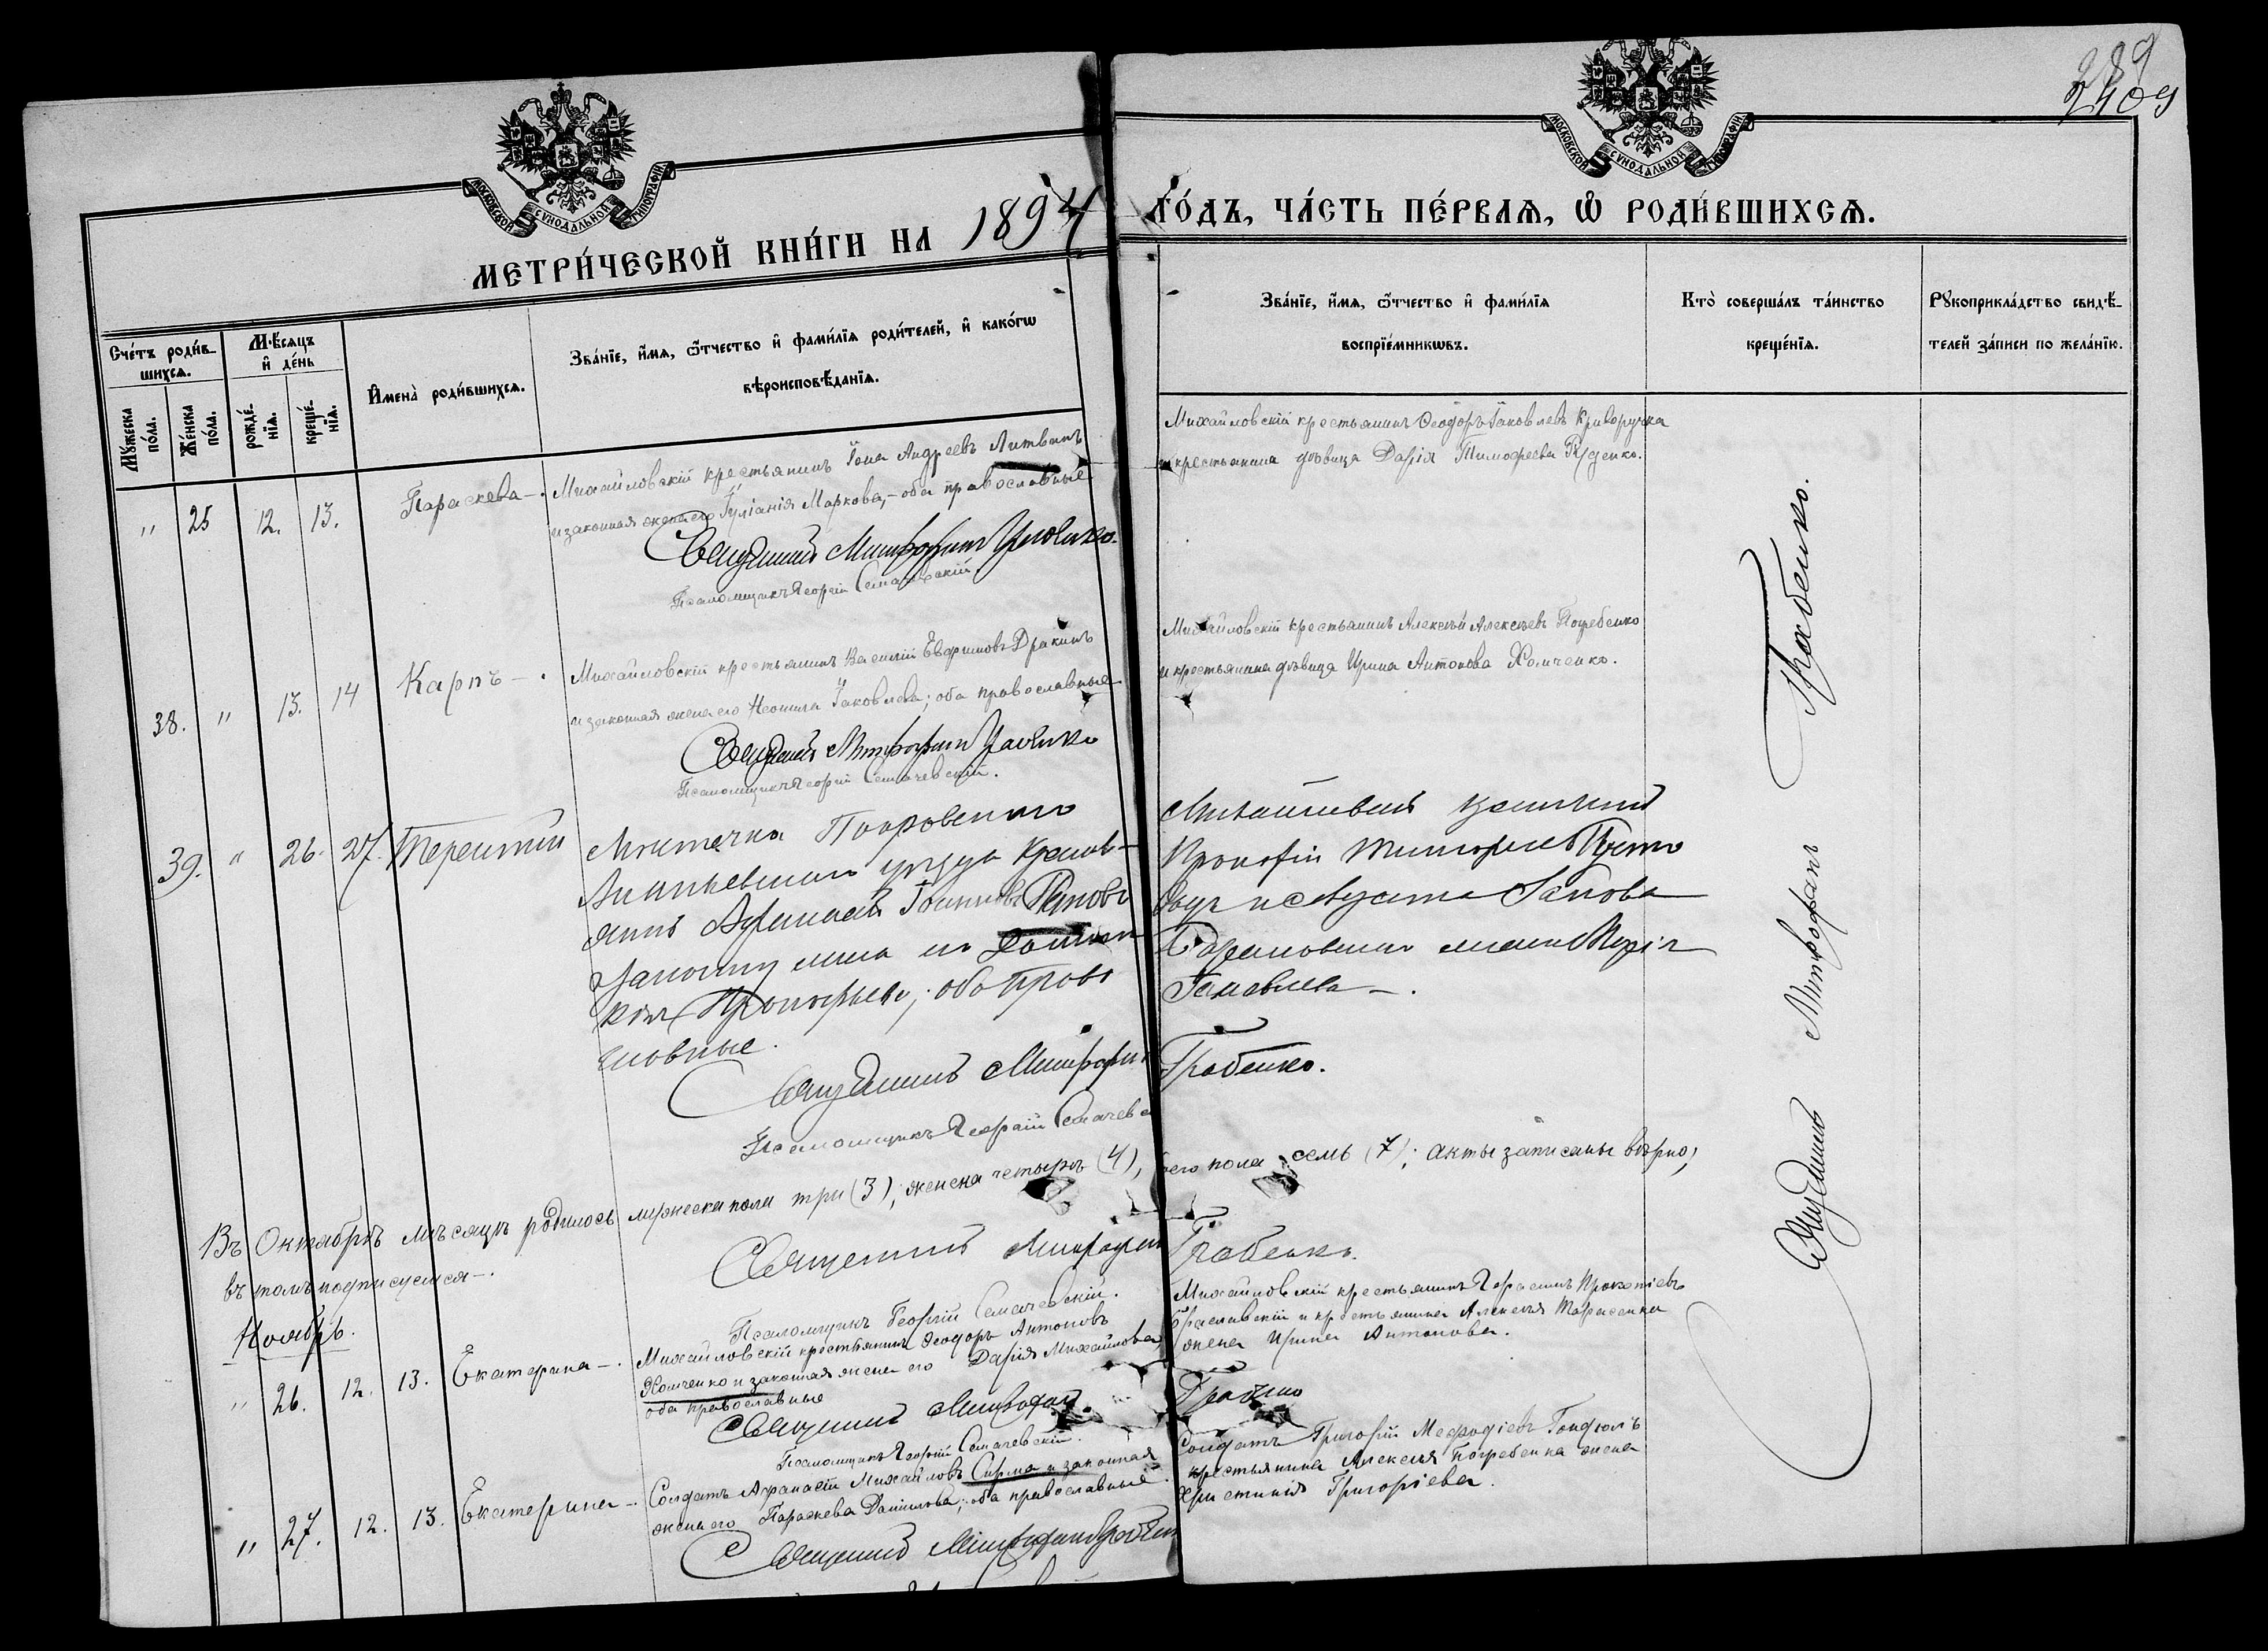 289
МОСКОВСКОЙ СѴНОДАЛЬНОЙ ТИПОГРАФІИ
МОСКОВСКОЙ СѴНОДАЛЬНОЙ ТИПОГРАФІИ
МЕТРИ́ЧЕСКОЙ КНИ́ГИ НА 1894 ГО́ДЪ, ЧА́СТЬ ПЕ́РВАѦ, Ѽ РОДИ́ВШИХСѦ.
Сче́тъ роди́в-
шихсѧ.
Мꙋ́жеска по́ла.
Же́нска по́ла.
М҄ѣсѧцъ и҆ де́нь
рожде́-
нїѧ.
креще́-
нїѧ.
И҆мена̀ роди́вшихсѧ.
Зва́нїе, и҆́мѧ, ѻ҆́тчество и҆ фами́лїѧ роди́телей, и҆ како́гѡ
вѣроисповѣ́данїѧ.
Зва́нїе, и҆́мѧ, ѻ҆́тчество и҆ фами́лїѧ
воспрїе́мникѡвъ.
Кто̀ соверша́лъ та́инство
креще́нїѧ.
Рꙋкоприкла́дство свидѣ́-
телей за́писи по жела́нїю.
" 25 12. 13. Параскева –.
Михайловскій крестьянинъ Іона Андреевъ Литвинъ
и законная жена его Іуліанія Маркова, – оба православные
Священникъ Митрофанъ Грабенко.
Псаломщикъ Георгій Семачевскій
Михайловскій крестьянинъ Ѳеодоръ Іаковлевъ Криворучка
и крестьянина дѣвица Дарія Тимофеева Руденко.
38. " 13. 14 Карпъ –.
Михайловскій крестьянинъ Василій Евфимовъ Дракинъ
и законная жена его Неонила Іаковлева; оба православные
Священникъ Митрофанъ Грабенко
Псаломщикъ Георгій Семачевскій.
Михайловскій крестьянинъ Алексѣй Алексѣевъ Погребенко
и крестьянина дѣвица Ирина Антонова Хомченко.
39. " 26. 27. Терентій
Мѣстечка Покровскаго
Ананьевскаго уѣзда крестья-
нинъ Афанасій Іоанновъ
законная жена его
Прокофьева; оба право
славные.
Священникъ Митрофанъ Грабенко.
Псаломщикъ Георгій Семачевск
Михайловскій
Прокофій
Іаковлева –.
Въ Октябрѣ мѣсяцѣ родилось мужеска пола три (3); женска четыре (4), всего пола семь (7); акты записаны вѣрно,
въ томъ подписуемся –.
Священникъ Митрофанъ Грабенко.
Псаломщикъ Георгій Семачевскій.
Ноябрь.
" 26. 12. 13. Екатерина –.
Михайловскій крестьянинъ Ѳеодоръ Антоновъ
Хомченко и законная жена его Дарія Михайлова,
оба православные
Священникъ Митрофанъ Грабенко
Псаломщикъ Георгій Семачевскій.
Михайловскій крестьянинъ Герасимъ Прокопіевъ
Браславскій и крестьянина Алексѣя Тарасенка
жена Ирина Антонова.
" 27. 12. 13. Екатерина –.
Солдатъ Афанасій Михайловъ Сирма и законная
жена его Параскева Даніилова; оба православные.
Священникъ Митрофанъ Грабен
Солдатъ Григорій Меѳодіевъ
крестьянина Алексѣя Погребенка жена
Христинія Григоріева.
Священникъ Митрофанъ Грабенко.